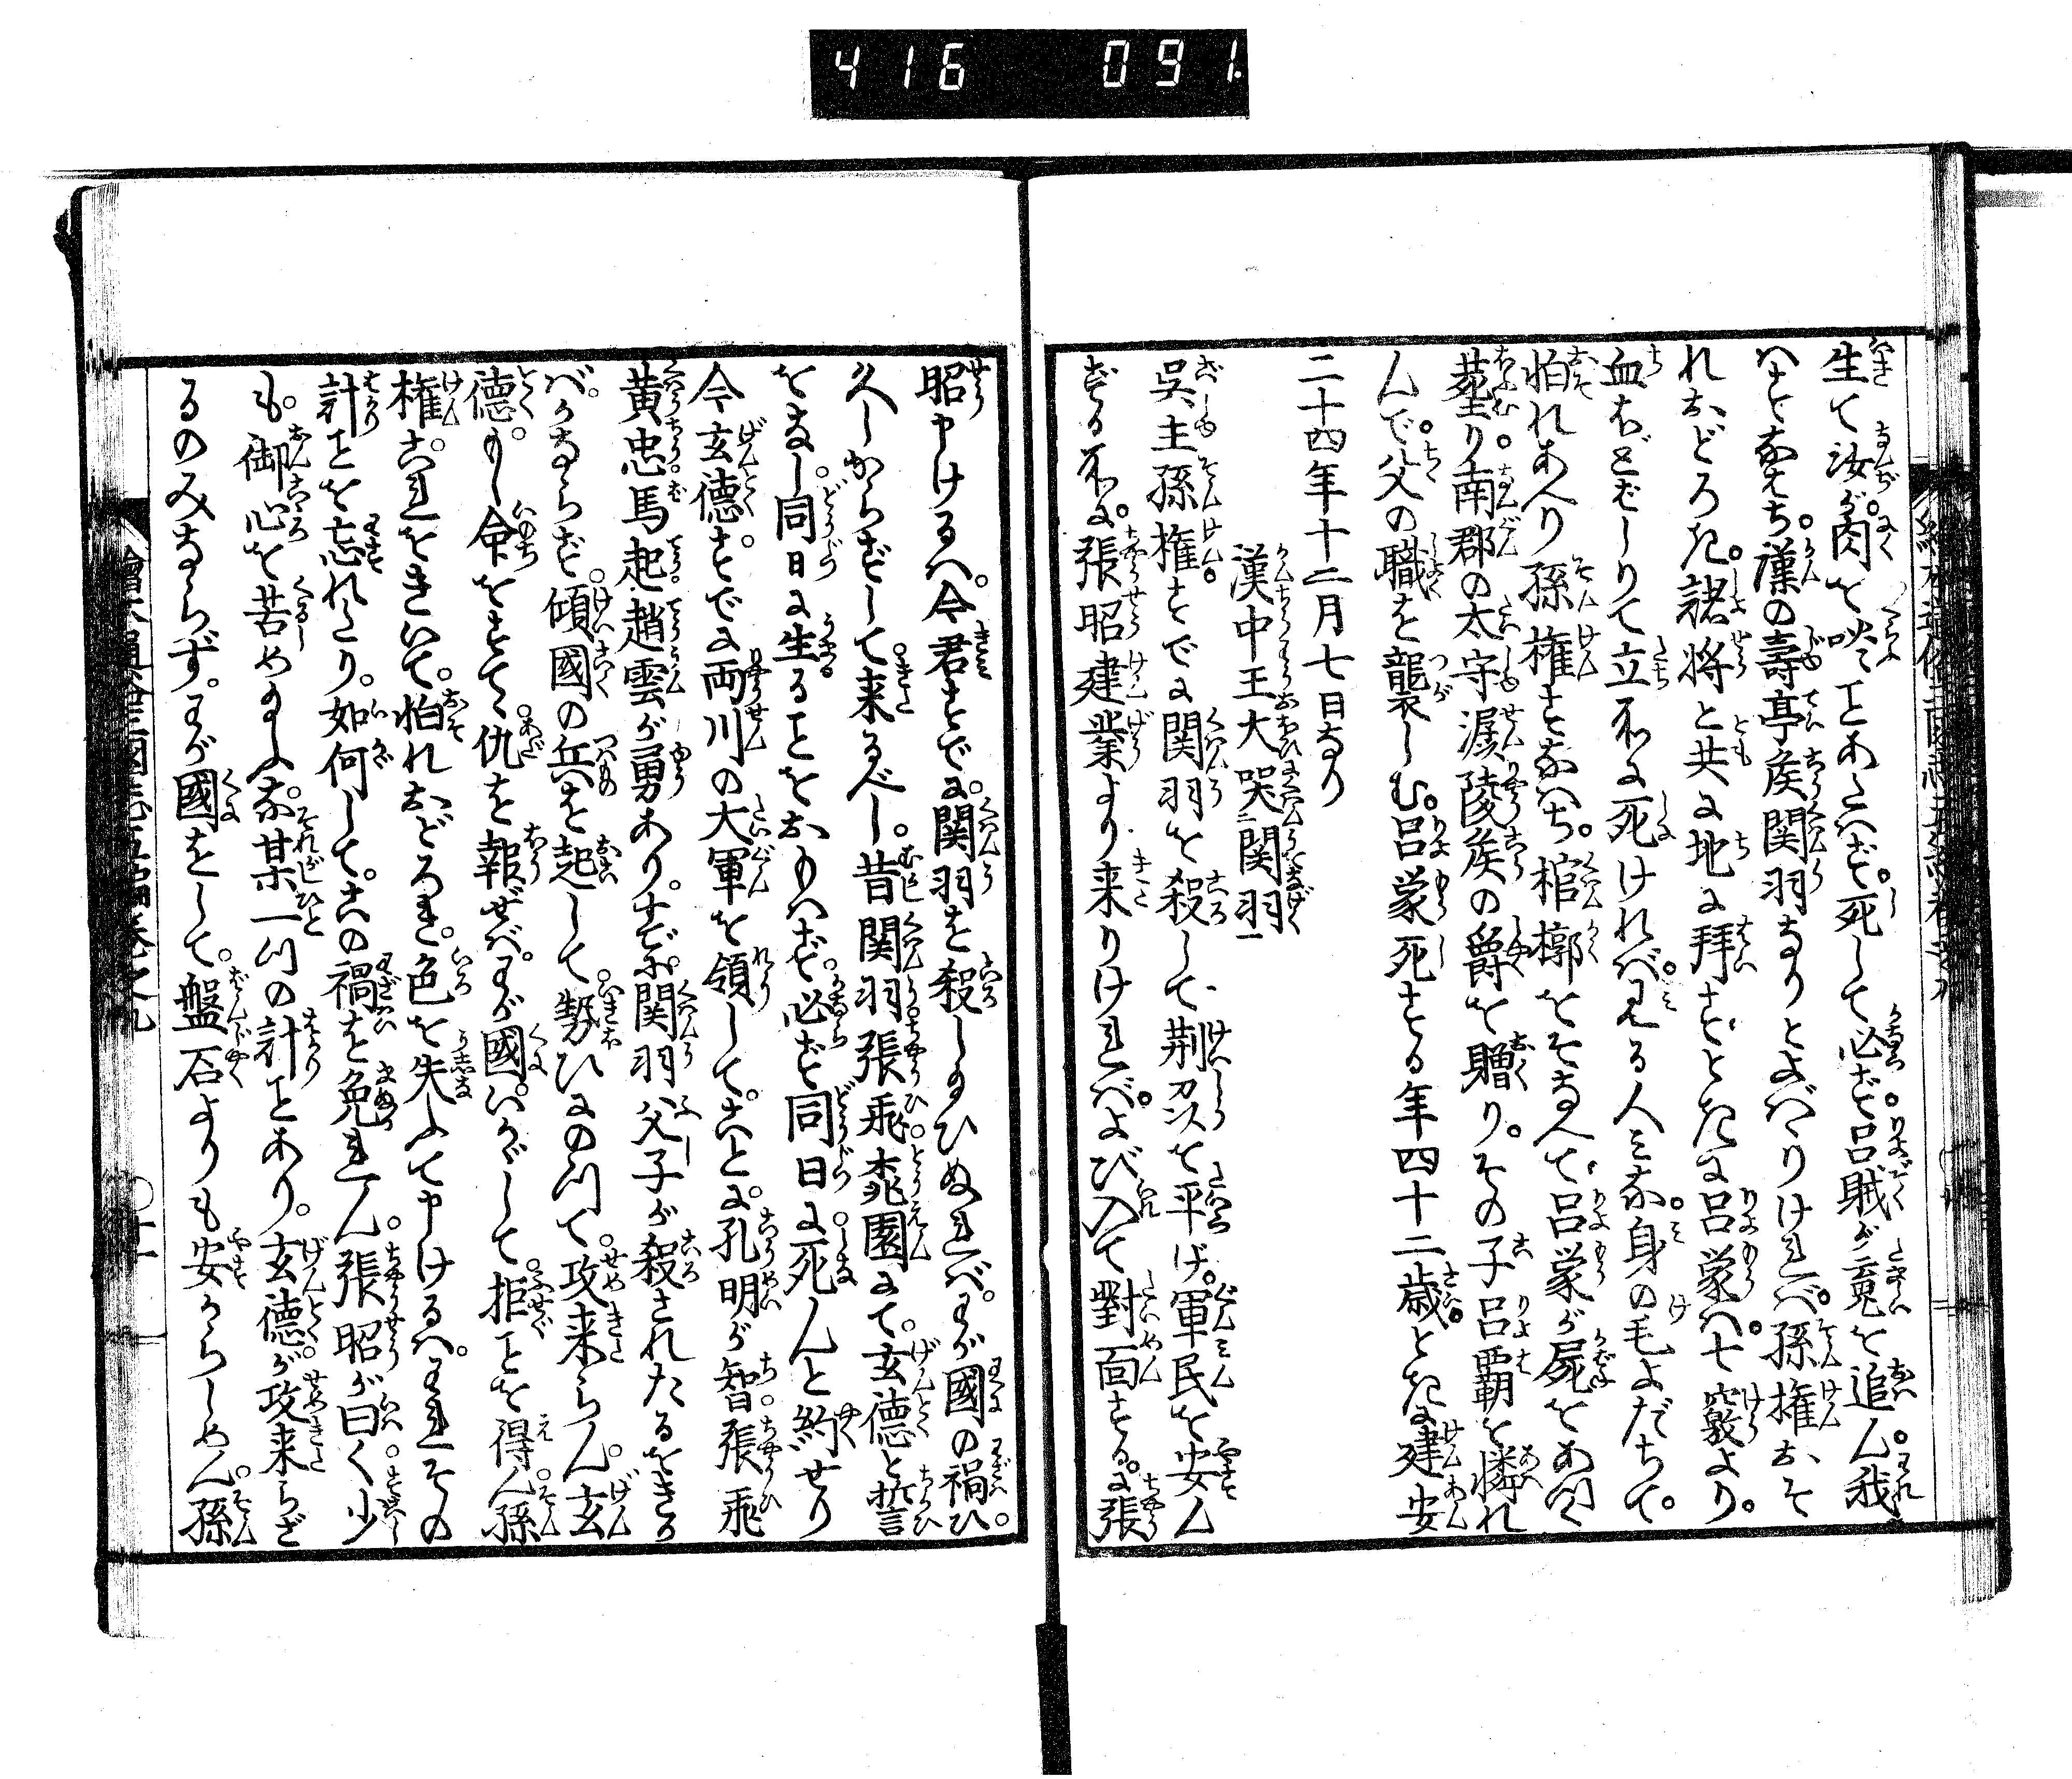 416 091.
生て汝が肉を啖ことあたはず。死して必ず呂賊が䰟を追ん。我
はこれすなはち。漢の壽亭侯関羽なりとよばゝりければ。孫権おそ
れおどろき。諸将と共に地に拝すときに呂蒙は。七竅より。
血ほどばしりて立所に死ければ。見る人みな。身の毛よだちて。
怕れあへり孫権すなはち。棺槨をそなへて呂蒙が屍をあつく
葬り。南郡の太守潺陵侯の爵を贈り。その子呂覇を憐れ
んで。父の職を襲しむ。呂蒙死する年四十二歳。ときに建安
二十四年十二月七日なり
漢中王大哭二関羽一
呉主孫権。すでに関羽を殺して荆州を平げ。軍民を安ん
ずる所に。張昭建業より来りければ。よび入て對面する。に張
昭申けるは。今君すでに。関羽を殺したまひぬれば。わが國の禍ひ。
久しからずして来るべし。昔関羽張飛桃園にて。玄徳と誓
をなし。同日に生ることをおもはず。必ず同日に死んと約せり
今玄徳。すでに両川の大軍を領して。ことに。孔明が智。張飛
黄忠馬起趙雲が勇あり。すでに。関羽父子が殺されたるをきか
ば。かならず。傾國の兵を起して。勢ひにのつて。攻来らん。玄
徳。もし命をすてゝ。仇を報ぜば。わが國。いかゞして。拒ことを得ん。孫
権。これをきいて。怕れおどろき。色を失ふて申けるは。われその
計ことを忘れたり。如何して。この禍を免れん。張昭が曰く少
も。御心を苦めたまふな。某一つの計ことあり。玄徳。が攻来らざ
るのみならず。わが國をして。盤石よりも安からしめん。孫